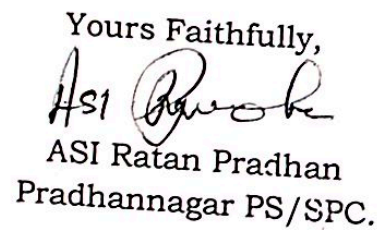 Yours Faithfully,
ASI
ASI Ratan Pradhan
Pradhannagar PS/SPC.